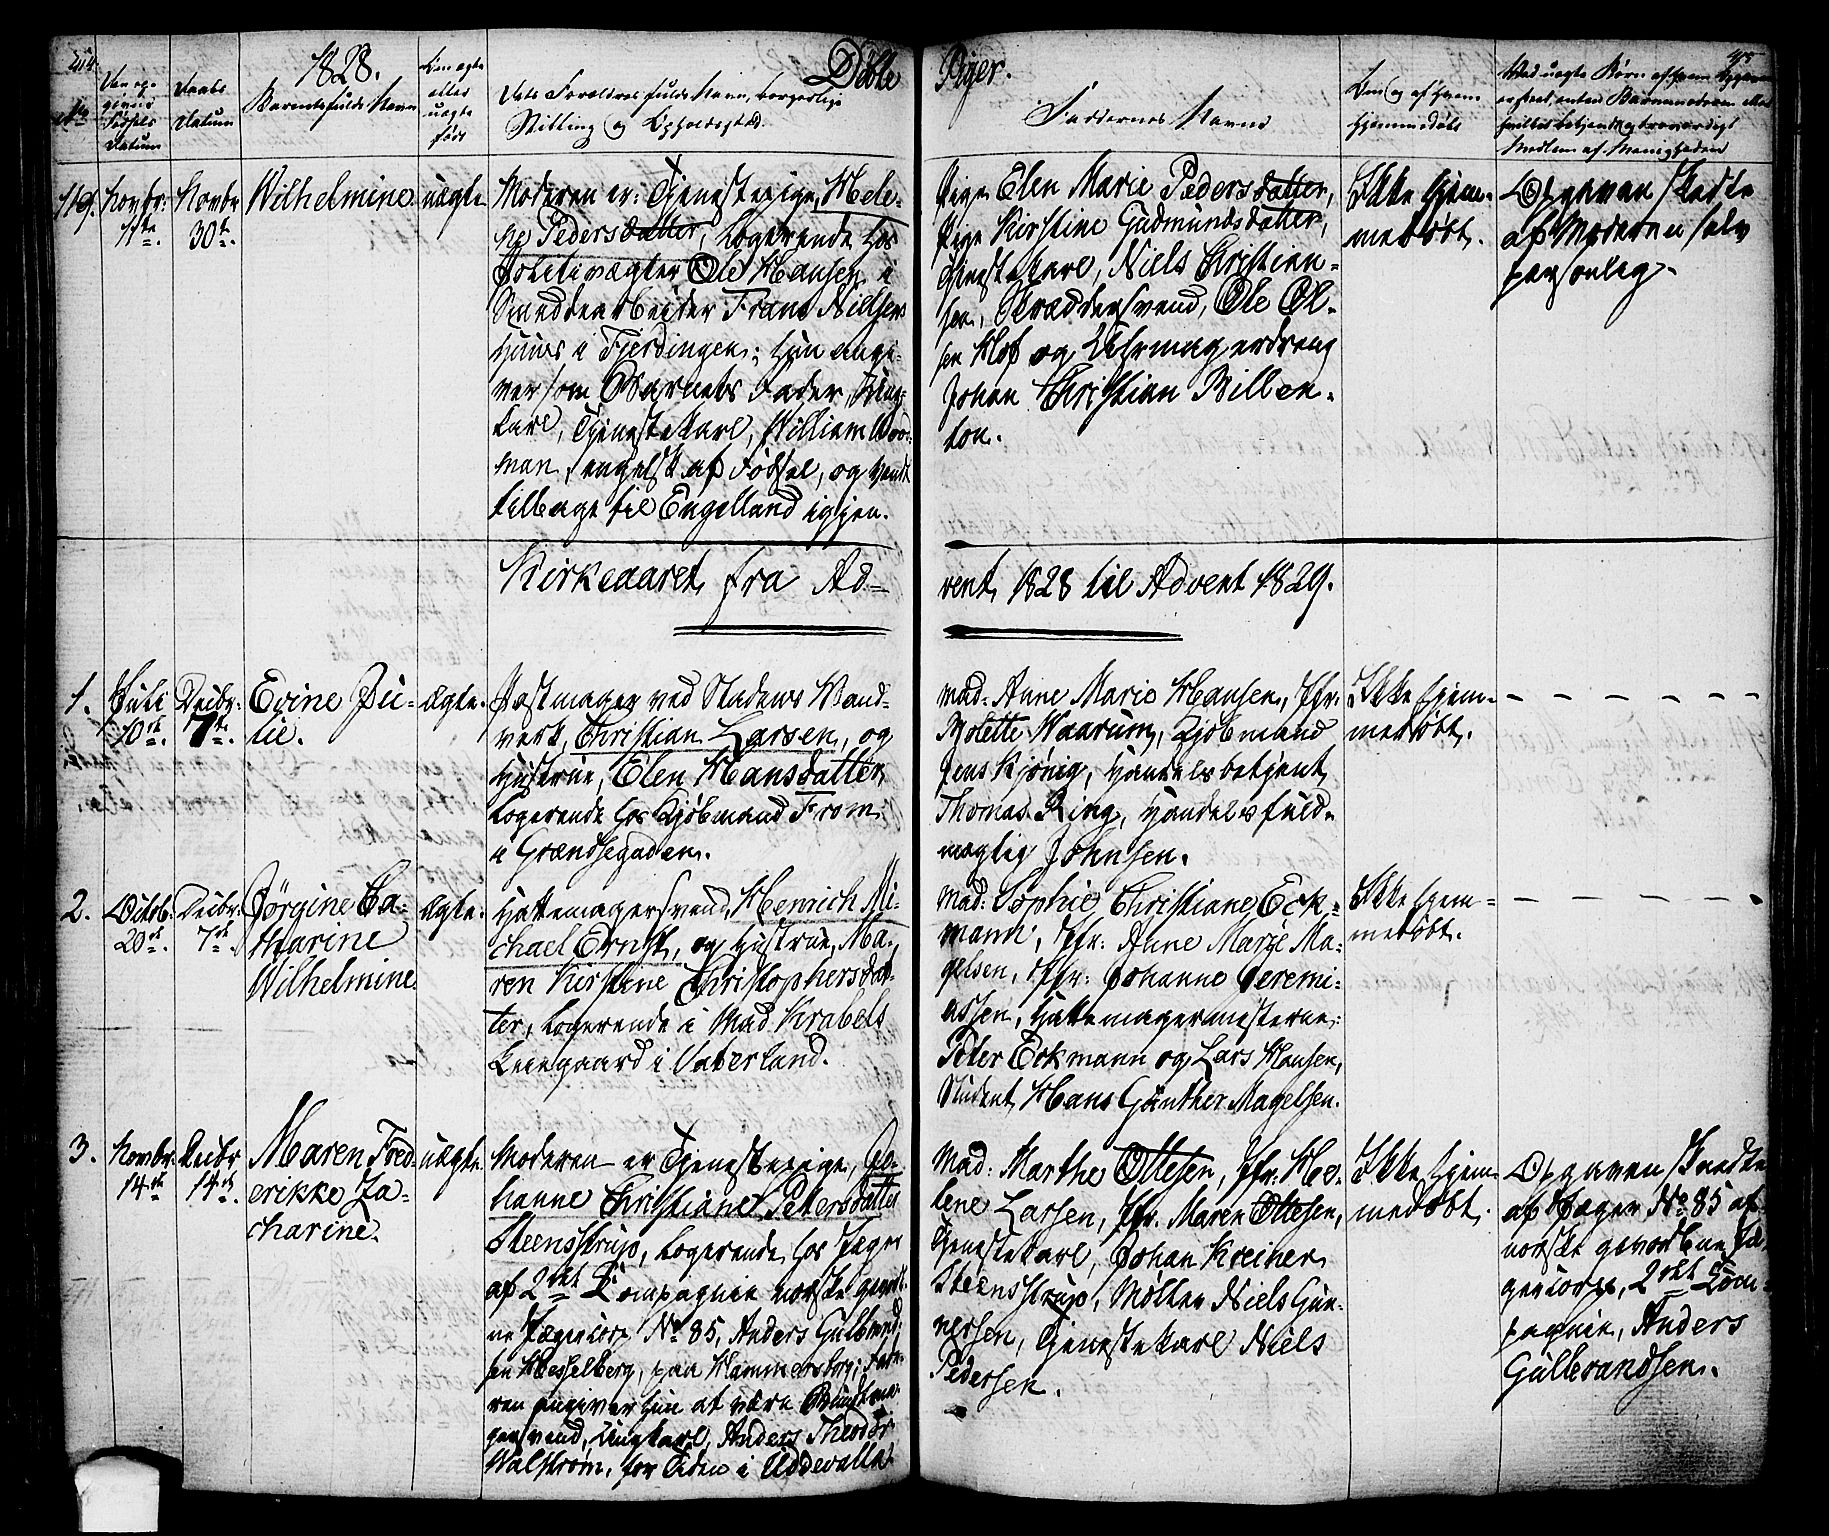 1828.
Døbte
Piger.
No
Den opgivne Fødsels Datum
Daabs Datum
Barnets fulde Navn
Om ægte eller uægte født
Dets Forældres fulde Navn, borgerlige
Stilling og Opholdssted.
Faddernes Navne
Om og af hvem
hjemmedøbt
119.
Novbr:
1ste
Novbr
30te.
Wilhelmine
uægte
Moderen er: Tjenestepige, Hele-
ne Pedersdatter, logerende hos
Politievægter Ole Hansen i
Frants Nielsens
Huus i Fjerdingen; hun angi-
ver som Barnets Fader, Ung-
karl, Tjenestekarl, William Wood-
man, engelsk af Fødsel, og vendt
tilbage til Engelland igjen.
Pige Elen Marie Pedersdatter,
Pige Kirstine Gudmundsdatter,
Tjenestekarl, Niels Christian-
sen, Skræddersvend, Ole Ol-
sen Hof og Uhrmagerdreng
Johan Christian Billen-
ton.
Ikke hjem-
medøbt.
Opgaven skedte
af Moderen selv
personlig.
Kirkeaaret fra Ad-
vent 1828 til Advent 1829.
1.
Juli
10de.
Decbr.
7de.
Evine Ju-
lie.
ægte.
Postmager ved Stadens Vand-
verk, Christian Larsen, og
Hustrue, Elen Hansdatter,
logerende hos Kjøbmand From
i Grændsegaden.
Mad: Anne Marie Hansen, Jfr.
Nolette Waarum, Kjøbmand
Jens Kjønig, Handelsbetjent
Thomas Ring, Handelsfuld-
mægtig Johnsen.
Ikke hjem-
medøbt.
2.
Octob:
20de.
Decbr.
7de.
Jørgine Ca-
tharine
Wilhelmine
ægte.
Hattemagersvend, Henrich Mi-
chael Ernst, og Hustrue, Ma-
ren Kirstine Christophersdat-
ter, logerende i Mad. Krabels
Leiegaard i Vaterland.
Mad: Sophie Christiane Eck-
mann, Jfr: Anne Marie Ma-
gelsen, Jfr: Johanne Jeremi-
assen, Hattemagermesterne:
Peter Eckmann og Lars Hansen,
Student Hans Günther Magelsen.
Ikke hjem-
medøbt.
3.
Novbr.
14de.
Decbr
14de.
Maren Fred-
erikke Za-
charine.
uægte
Moderen er Tjenestepige, Jo-
hanne Christiane Petersdatter
Steensstrup, logerende hos Jæger
af 2det Compagnie norske gevorb-
ne Jægercorps No 85, Anders Gulbrand-
sen Hesselberg, paa Hammersborg; Fade-
ren angiver hun at være Bundtma-
gersvend, Ungkarl, Anders Theodor
Walstrøm, for Tiden i Uddevalla.
Mad: Marthe Ottesen, Jfr. He-
lene Larsen, Jfr. Maren Ottesen,
Tjenestekarl, Johan Kreiner
Steensstrup, Møller Niels Gun-
nersen, Tjenestekarl Niels
Pedersen.
Ikke hjem-
medøbt.
Opgaven skedte
af Jæger No 85 af
norske gevorbne Jæ-
gercorps, 2det Com-
pagnie, Anders
Gulbrandsen.